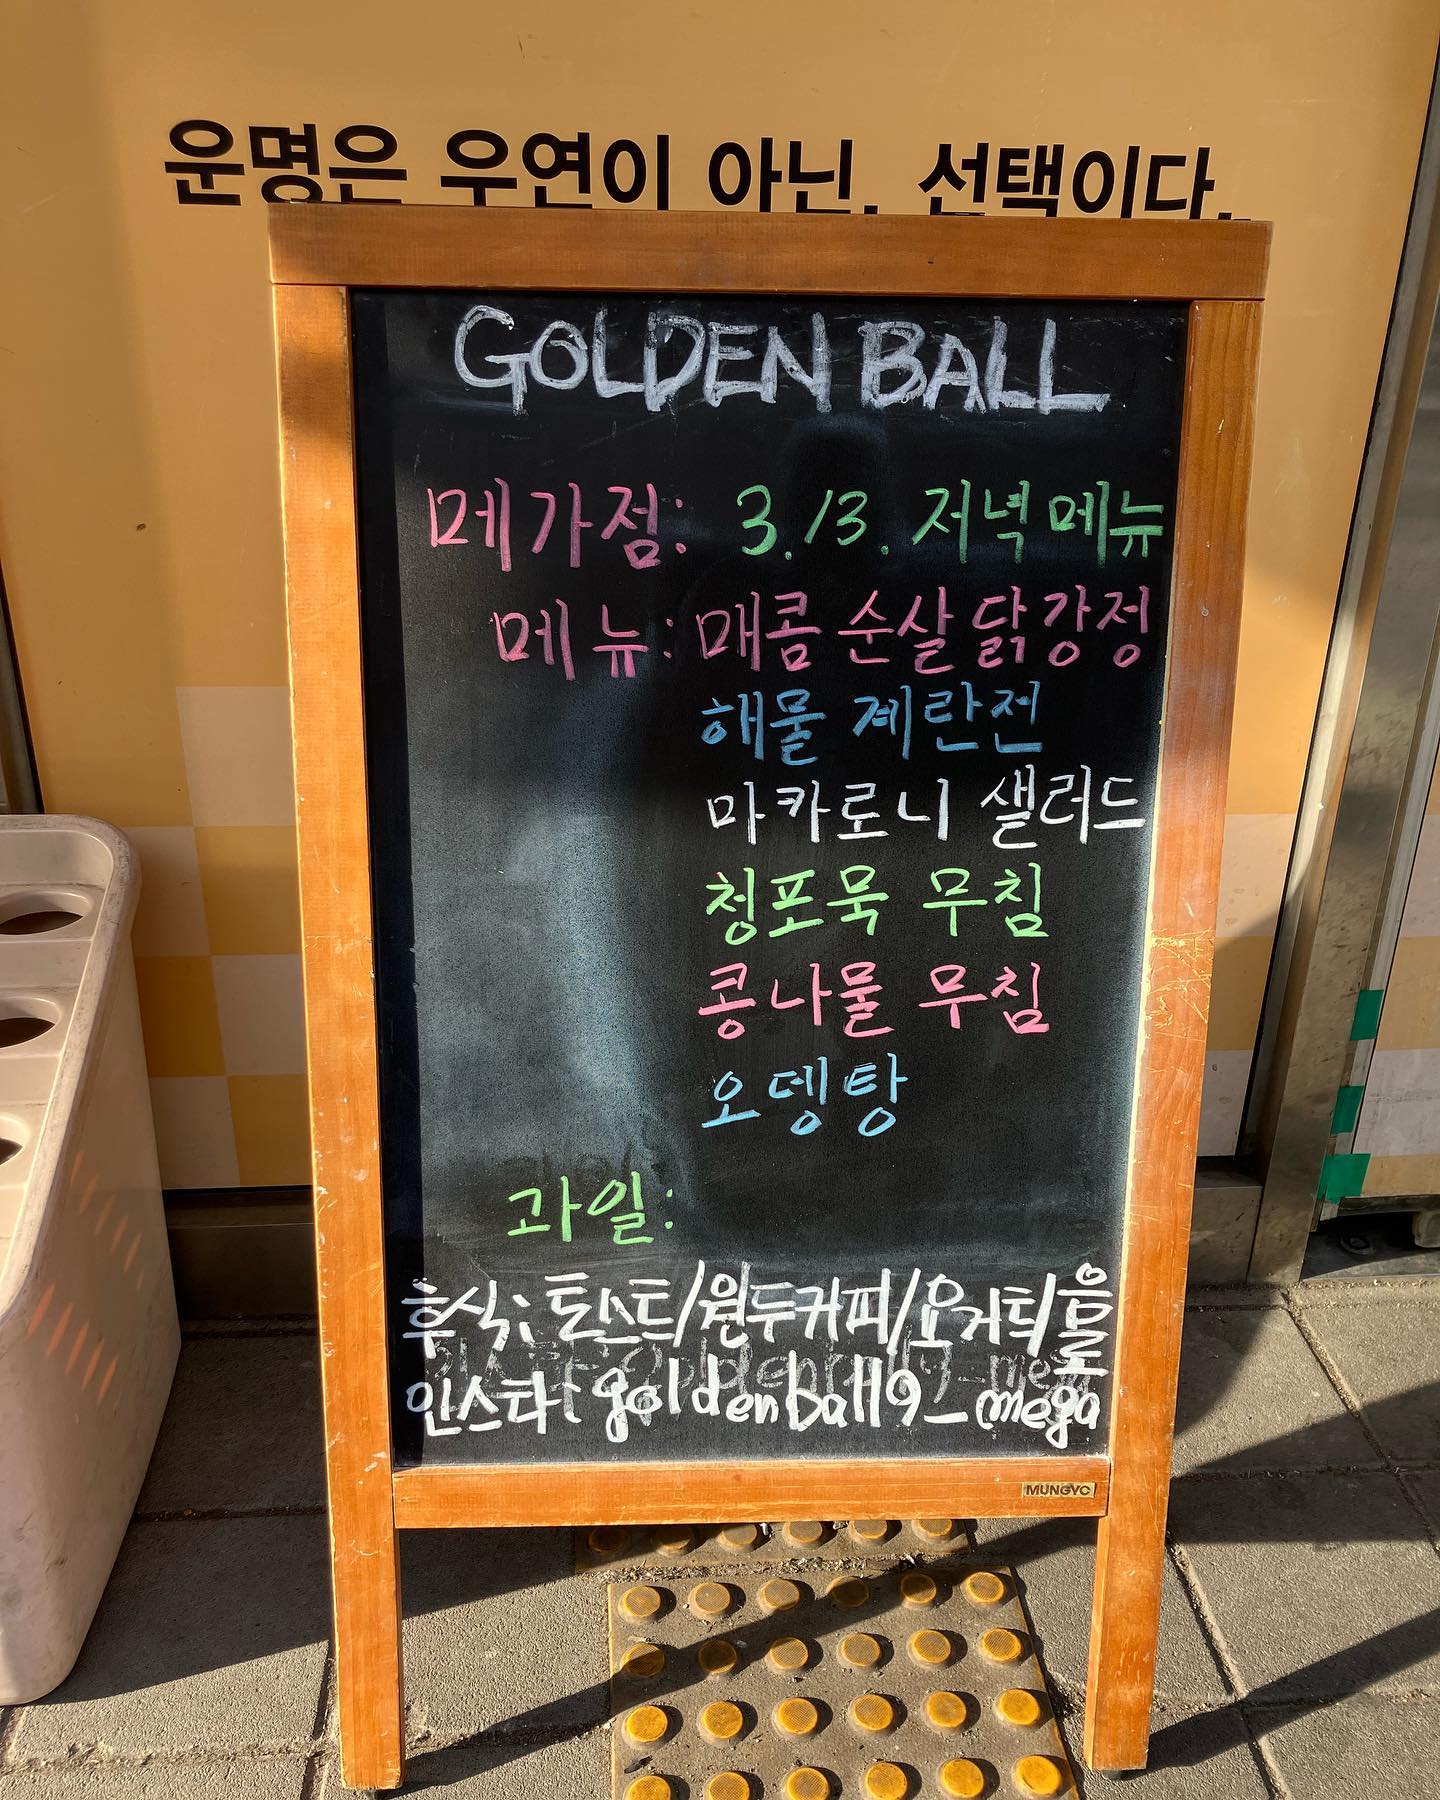 운명은 우연이 아닌, 선택이다.
GOLDEN BALL
메가점: 3./3. 저녁메뉴
메뉴: 매콤 순살 닭강정
해물 계란전
마카로니 샐러드
청포묵 무침
콩나물 무침
오뎅탕
과일:
후식: 토스트/원두커피/요거트/음료
인스타: goldenball9_mega
MUNGYO